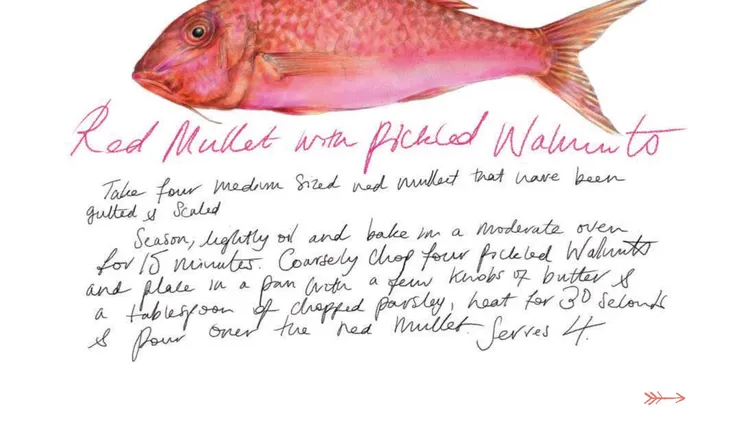 Red Mullet with pickled Walnuts
Take four medium sized red mullet that have been
gutted & scaled
Season, lightly oil and bake in a moderate oven
for 15 minutes. Coarsely chop four pickled Walnuts
and place in a pan with a few knobs of butter &
a tablespoon of chopped parsley, heat for 30 seconds
& pour over the red mullet. Serves 4.